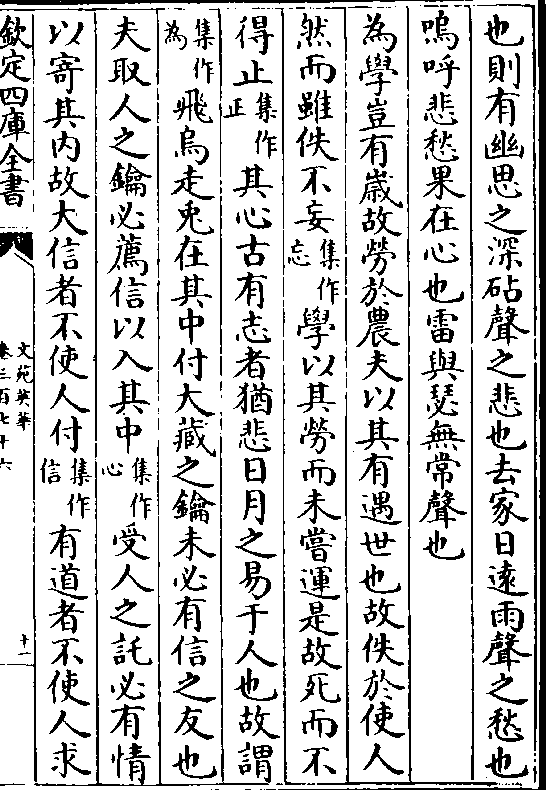 也則有幽思之深砧聲之悲也去家日逺雨聲之愁也
嗚呼悲愁果在心也雷與瑟無常聲也
為學豈有歳故勞於農夫以其有遇世也故佚於使人
然而雖佚不妄集作忘學以其勞而未嘗運是故死而不
得止集作正其心古有志者猶悲日月之易于人也故謂
集作為飛烏走兎在其中付大藏之鑰未必有信之友也
夫取人之鑰必薦信以入其中集作心受人之託必有情
以寄其内故大信者不使人付集作信有道者不使人求
欽定四庫全書
文苑英華
卷三百七十六
十一